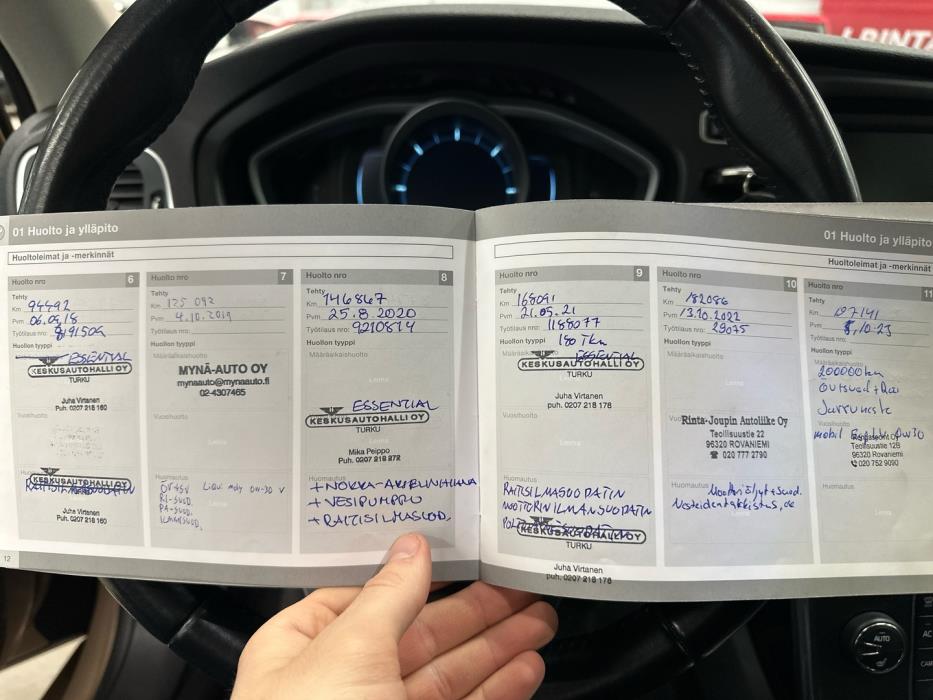 01 Huolto ja ylläpito
Huoltoleimat ja -merkinnät
Huolto nro 6
Tehty
Km 94492
Pvm 06.09.18
Työtilaus nro:
Huollon tyyppi
ESSENTIAL
KESKUSAUTOHALLI OY
TURKU
Juha Virtanen
Puh. 0207 218 160
Vuosihuolto
Huomautus
KESKUSAUTOHALLI OY
TURKU
Juha Virtanen
Puh. 0207 218 160
12
Huolto nro 7
Tehty
Km 125 092
Pvm 4.10.2019
Työtilaus nro:
Huollon tyyppi
MYNÄ-AUTO OY
mynaauto@mynaauto.fi
02-4307465
Vuosihuolto
Leima
Huomautus
ÖV+SV Liqui moly 0W-30 V
RI-SUOD.
PA-SUOD.
ILMANSUOD.
Huolto nro 8
Tehty
Km 146867
Pvm 25.8.2020
Työtilaus nro: 9210814
Huollon tyyppi
Määräaikaishuolto
Leima
ESSENTIAL
KESKUSAUTOHALLI OY
TURKU
Mika Peippo
Puh. 0207 218 272
Huomautus
+NOKKA-AKSELINHIHNA
+VESIPUMPPU
+RAITISILMASUOD.
Huoltoleimat ja -merkinnät
01 Huolto ja ylläpito
Huolto nro 9
Tehty
Km 168091
Pvm 21.05.21
Työtilaus nro: 1188077
Huollon tyyppi 180 Tkm
ESSENTIAL
KESKUSAUTOHALLI OY
TURKU
Juha Virtanen
puh. 0207 218 178
Vuosihuolto
Leima
Huomautus
RAITISILMASUODATIN
MOOTTORINILMANSUODATIN
KESKUSAUTOHALLI OY
TURKU
Juha Virtanen
puh. 0207 218 178
Huolto nro 10
Tehty
Km 182086
Pvm 13.10.2022
Työtilaus nro: 29075
Huollon tyyppi
Määräaikaishuolto
Leima
Vuosihuolto
Rinta-Joupin Autoliike Oy
Teollisuustie 22
96320 ROVANIEMI
☎ 020 777 2790
Huomautus
Moottoriöljyt+suod.
Nesteidentarkistus,
Huolto nro 11
Tehty
Km
Pvm
Työtilaus nro:
Huollon tyyppi
200000km
Jarruneste
Teollisuustie 12B
96320 Rovaniemi
020 752 9090
Huomautus
AUTO